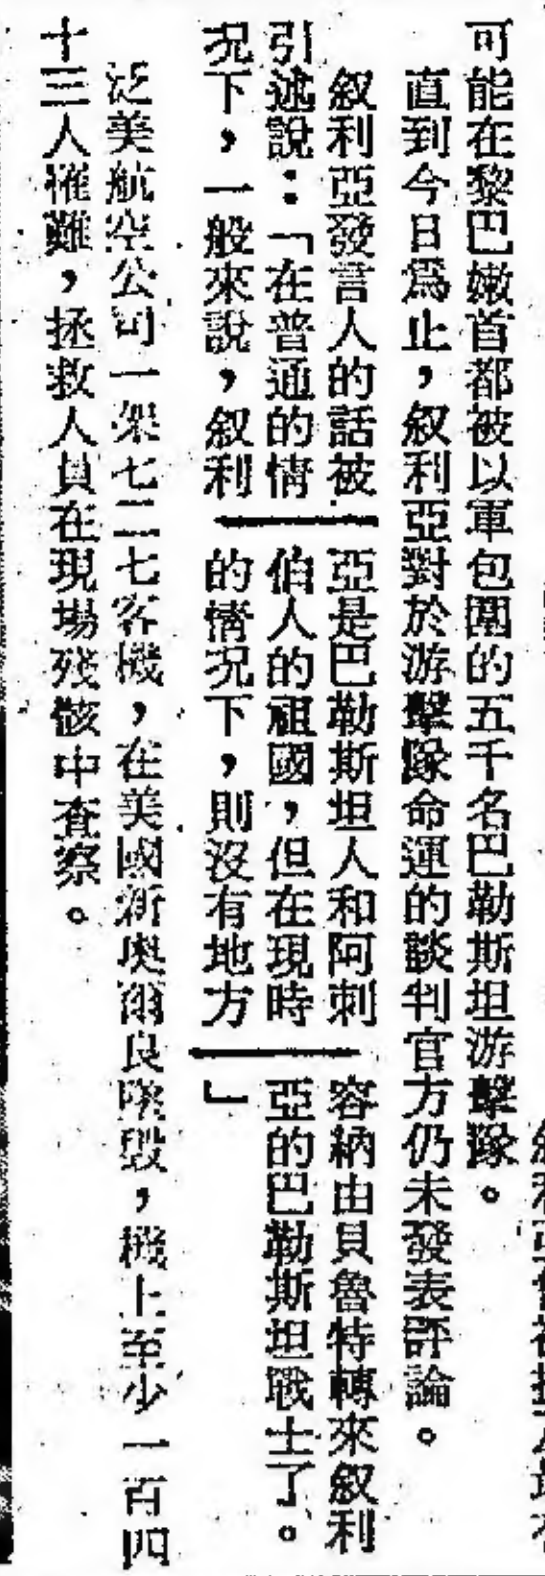 可能在黎巴嫩首都被以軍包圍的五千名巴勒斯坦游擊隊。
直到今日爲止，叙利亞對於游擊隊命運的談判官方仍未發表評論。
叙利亞發言人的話被
引述說：「在普通的情
况下，一般來說，叙利
亞是巴勒斯坦人和阿刺
伯人的祖國，但在現時
的情况下，則沒有地方
容納由貝魯特轉來叙利
亞的巴勒斯坦戰士了。
」
泛美航空公司一架七二七客機，在美國新奥爾良墜毁，機上至少一百四
十三人罹難，拯救人員在現場殘骸中查察。